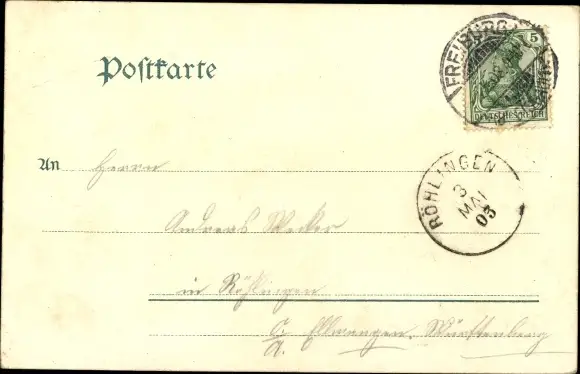 Postkarte
FREIBURG
5
DEUTSCHES REICH
An Herrn
RÖHLINGEN
3
MAI
03
Andreas Wecker
in Röhlingen
O/A. Ellwangen. Württemberg